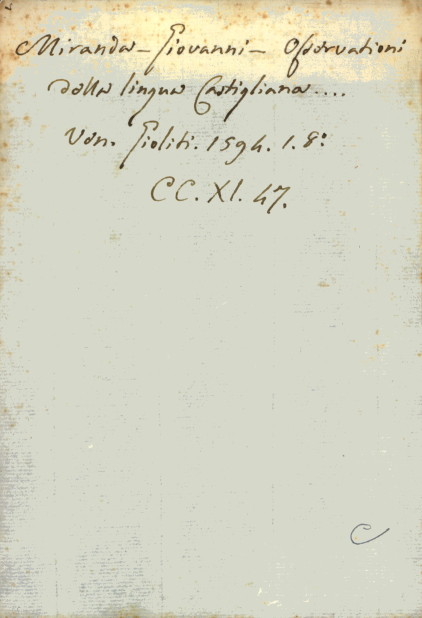 Miranda - Giovanni - Osservationi
della lingua Castigliana....
Ven. Gioliti. 1594. 1. 8º
CC. XI. 47.
C